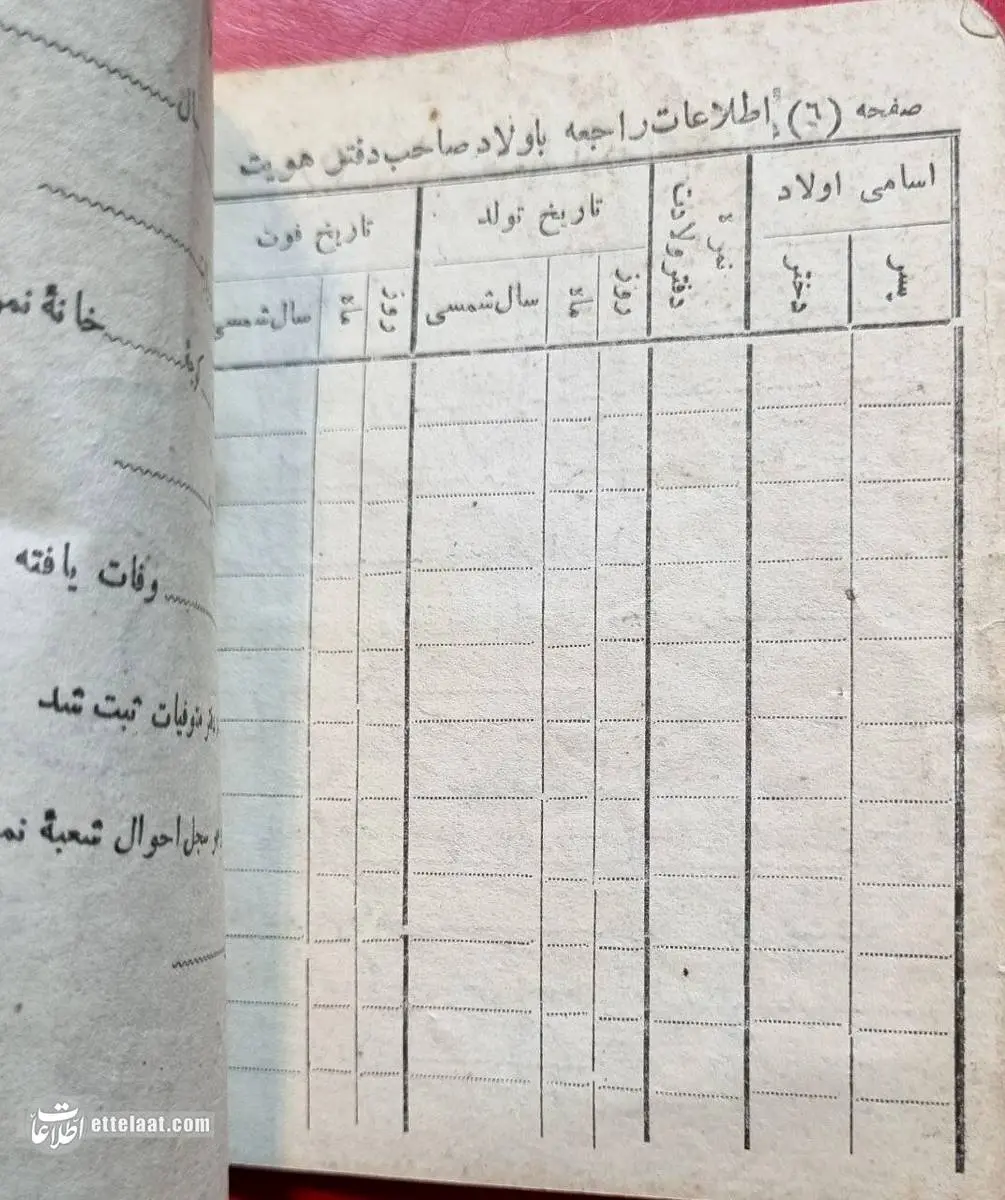 صفحه (٦) اطلاعات راجعه باولاد صاحب دفتر هویت
اسامی اولاد
نمرۀ دفتر ولادت
تاریخ تولد
تاریخ فوت
پسر
دختر
روز
ماه
سال شمسی
روز
ماه
سال شمسی
خانۀ نمر
وفات یافته
متوفیات ثبت شد
سجل احوال شعبۀ نم
اطلاعات ettelaat.com